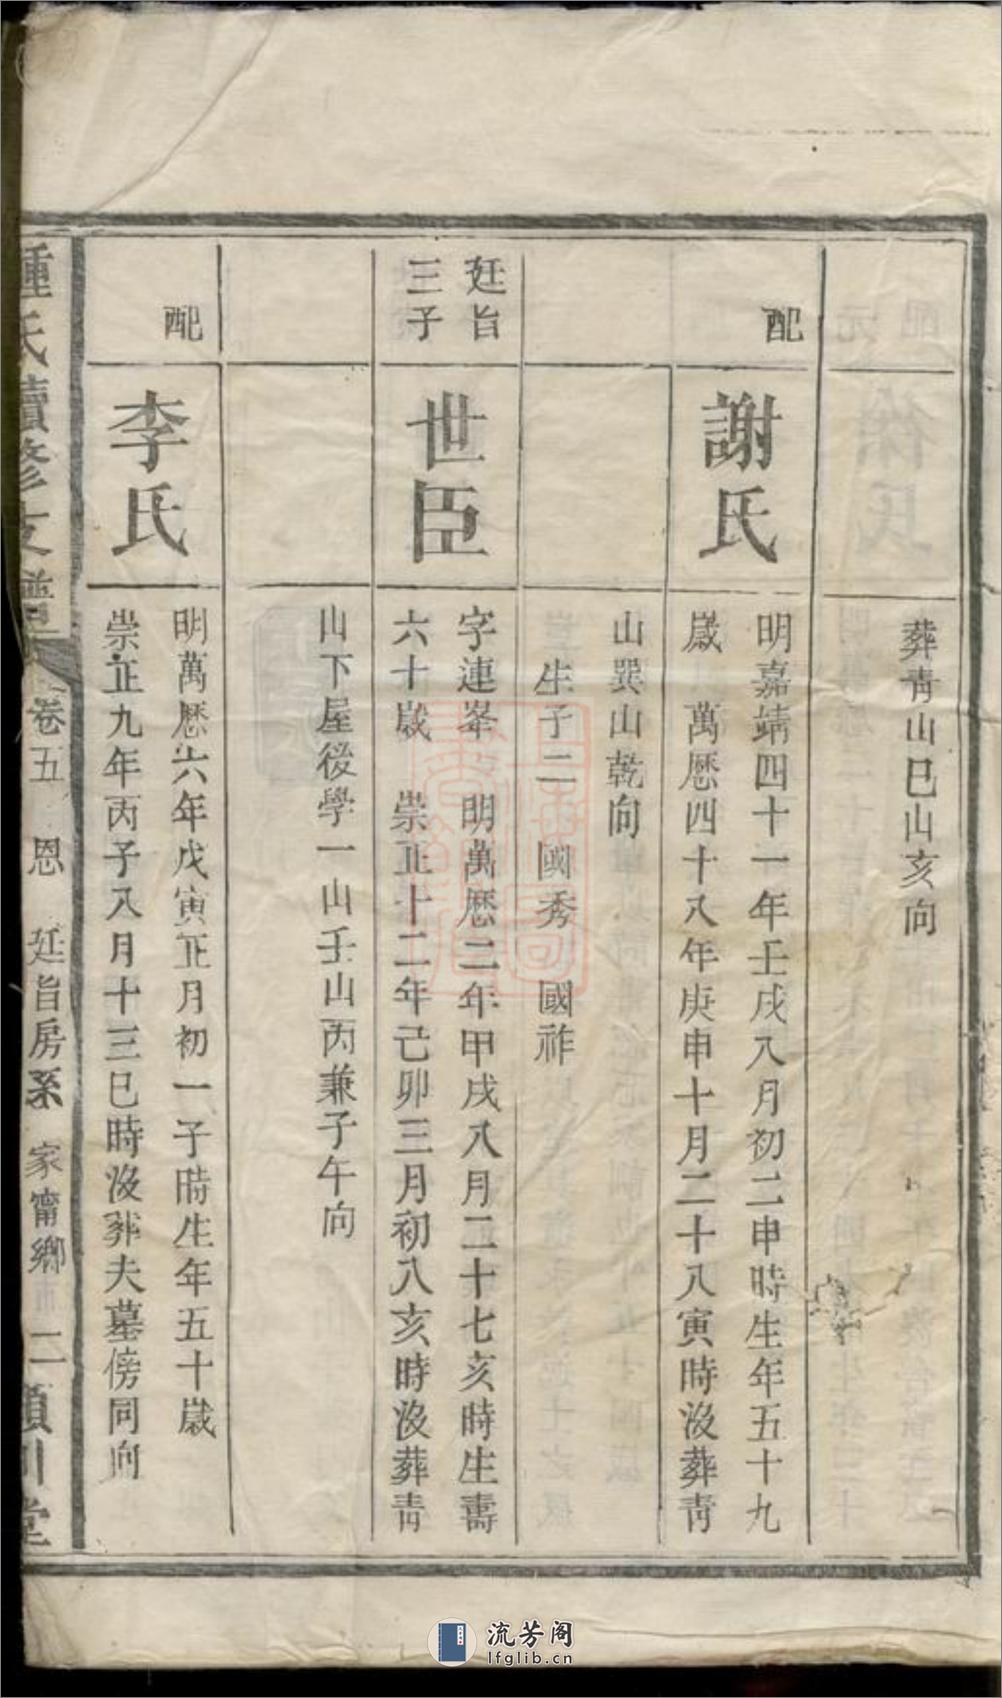 葬青山巳山亥向
配
謝氏
明嘉靖四十一年壬戌八月初二申時生年五十九
歲　萬歷四十八年庚申十月二十八寅時沒葬青
山巽山乾向
生子二　國秀　國祚
廷旨
三子
世臣
字連峯　明萬歷二年甲戌八月二十七亥時生壽
六十歲　崇正十二年己卯三月初八亥時沒葬青
山下屋後學一山壬山丙兼子午向
配
李氏
明萬歷六年戊寅正月初一子時生年五十歲
崇正九年丙子八月十三巳時沒葬夫墓傍同向
鍾氏續修支譜　卷五　恩　廷旨房系　家甯鄉　二　潁川堂
流芳阁
lfglib.cn